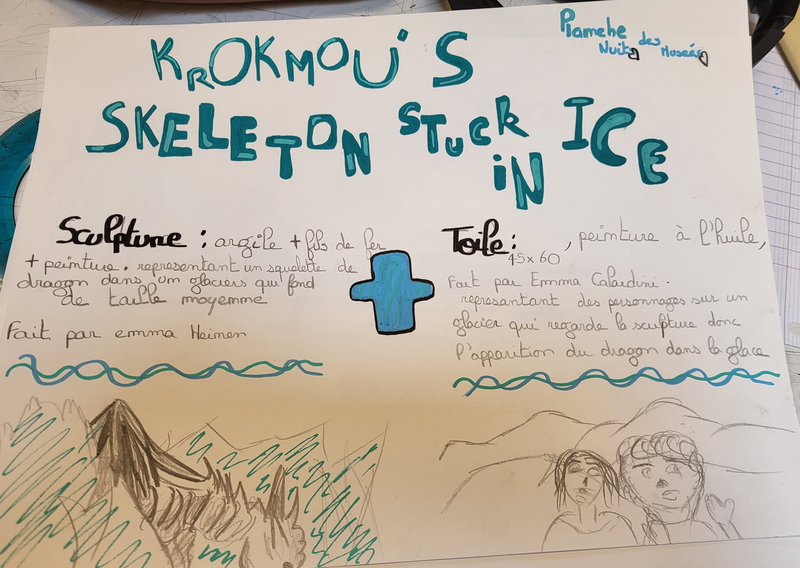 Planche
Nuits des Musées
KROKMOU'S
SKELETON STUCK IN ICE
Sculpture : argile + fils de fer
+ peinture. representant un squelette de
dragon dans un glaciers qui fond
de taille moyemme
Fait par emma Heimen
Toile : 45x60, peinture à l'huile,
Fait par Emma Calardini.
represantant des personnages sur un
glacier qui regarde la sculpture donc
l'apparition du dragon dans la glace